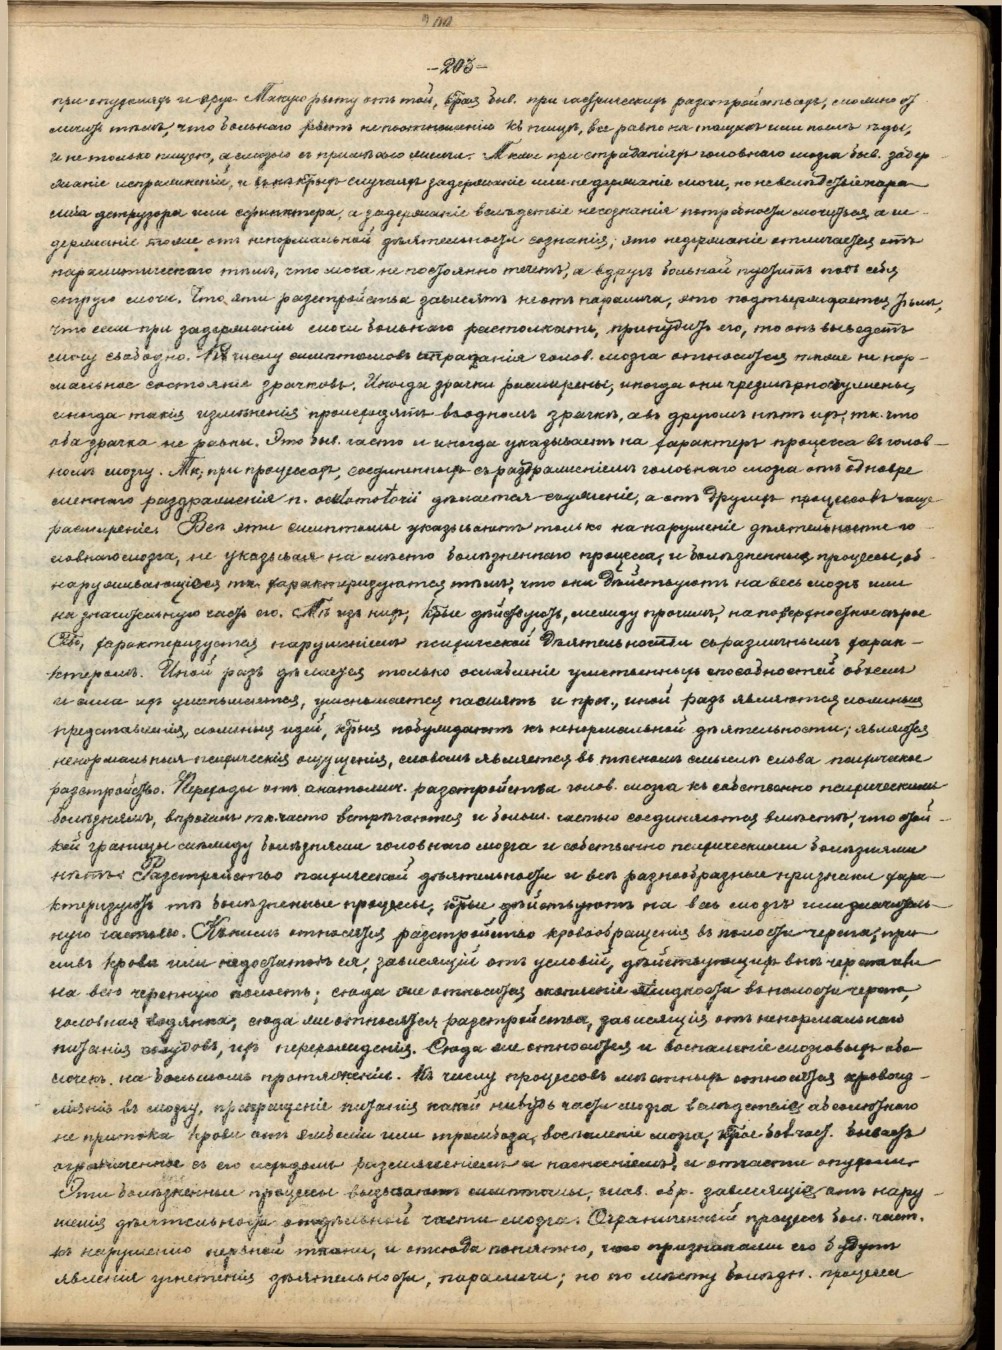 —203—
при опухоляхъ и друг. Такую рвоту отъ той, ктрая быв. при гастрическихъ разстройствахъ, можно от
личить тѣмъ, что больнаго рветъ не по отношенію къ пищѣ, все равно на тощакъ или послѣ ѣды,
и не только пищею, а слизью съ примѣсью желчи. Также при страданіяхъ головнаго мозга быв. задер-
жаніе испражненій, и въ нѣктрыхъ случаяхъ задержаніе или недержаніе мочи, но не вслѣдствіе пара-
лича детрузора или сфинктера, а задержаніе вслѣдствіе несознанія потребности мочиться, а не-
держаніе тоже отъ ненормальной дѣятельности сознанія; это недержаніе отличается отъ
паралитическаго тѣмъ, что моча не постоянно течетъ, а вдругъ больной пуститъ подъ себя
струю мочи. Что эти разстройства зависятъ не отъ паралича, это подтверждается тѣмъ,
что если при задержаніи мочи больнаго растолкать, принудить его, то онъ выведетъ
мочу свободно. Къ числу симптомовъ страданія голов. мозга относится также не нор-
мальное состояніе зрачковъ. Иногда зрачки расширены, иногда они чрезмѣрно съужены,
иногда такія измѣненія происходятъ въ одномъ зрачкѣ, а въ другомъ нѣтъ ихъ, тк. что
оба зрачка не равны. Это быв. часто и иногда указываетъ на характеръ процесса въ голов-
номъ мозгу. Тк, при процессахъ, соединенныхъ съ раздраженіемъ головнаго мозга отъ одновре
меннаго раздраженія n. oculomotorii дѣлается съуженіе, а отъ другихъ процессовъ чаще
расширеніе. Всѣ эти симптомы указываютъ только на нарушеніе дѣятельности го-
ловнаго мозга, не указывая на мѣсто болѣзненнаго процесса, и болѣзненные процессы, об-
наруживающіеся тк. характеризуются тѣмъ, что они дѣйствуютъ на весь мозгъ или
на значительную часть его. Тѣ изъ нихъ, ктрые дѣйствуютъ, между прочимъ, на поверхностное сѣрое
в-во, характеризуются нарушеніемъ психической дѣятельности съ различнымъ харак-
ктеромъ. Иной разъ дѣлается только ослабленіе умственныхъ способностей объемъ
и сила ихъ уменьшается, уменьшается память и проч., иной разъ являются ложныя
представленія, ложныя идеи, ктрыя побуждаютъ къ ненормальной дѣятельности; являются
ненормальныя психическія ощущенія, словомъ является въ тѣсномъ смыслѣ слова психическое
разстройство. Переходы отъ анатомич. разстройства голов. мозга къ собственно психическимъ
болѣзнямъ, впрочемъ тк. часто встрѣчаются и больш. частью соединяются вмѣстѣ, что стой-
кой границы между болѣзнями головнаго мозга и собственно психическими болѣзнями
нѣтъ. Разстройство психической дѣятельности и всѣ разнообразные признаки хара-
ктеризуютъ тѣ болѣзненные процессы, ктрые дѣйствуютъ на весь мозгъ или значитель-
ную часть его. Къ нимъ относятся разстройство кровообращенія въ полости черепа, при-
ливъ крови или недостатокъ ея, зависящій отъ условій, дѣйствующихъ внѣ черепа или
на всю черепную полость; сюда же относится скопленіе жидкости въ полости черепа,
головная водянка; сюда же относятся разстройства, зависящія отъ ненормальнаго
питанія сосудовъ, ихъ перерожденія. Сюда же относится и воспаленіе мозговыхъ обо-
лочекъ на большомъ протяженіи. Къ числу процессовъ мѣстныхъ относятся кровоиз-
ліяніе въ мозгу, прекращеніе питанія какой нибудь части мозга вслѣдствіе абсолютнаго
не притока крови отъ эмболіи или тромбоза, воспаленіе мозга, ктрое бол. част. бываетъ
ограниченное съ его исходомъ размягченіемъ и нагноеніемъ, и отчасти опухоли.
Эти болѣзненные процессы вызываютъ симптомы, глав. обр. зависящіе отъ нару-
шенія дѣятельности отдѣльной части мозга. Ограниченный процессъ бол. част.
въ нарушеніи нервной ткани, и отсюда понятно, что признаками его будутъ
явленія угнетенія дѣятельности, параличи; но по мѣсту болѣзн. процесса